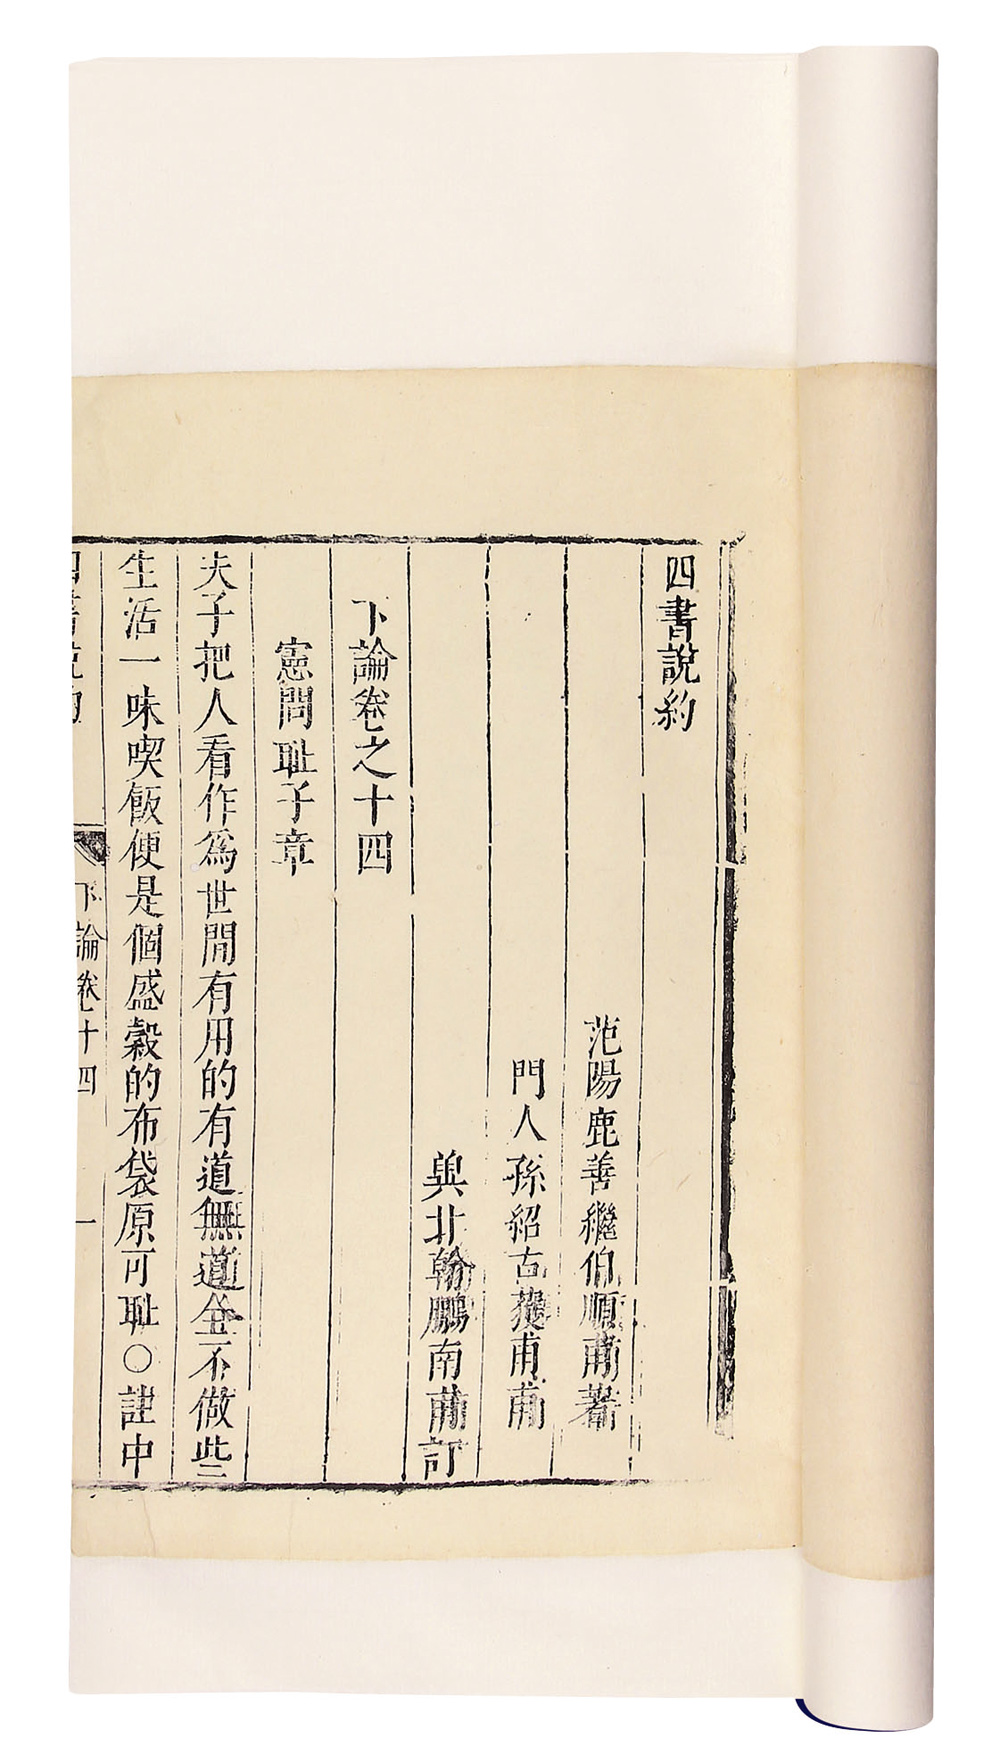 四書說約
范陽鹿善繼伯順甫著
門人孫紹古㢲甫甫
吳北翰鵬南甫訂
下論卷之十四
憲問耻子章
夫子把人看作爲世間有用的有道無道全不做些
生活一味喫飯便是個盛穀的布袋原可耻〇註中
四書說約 下論卷十四 一